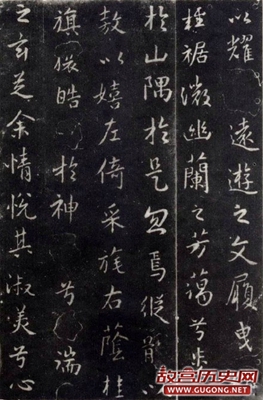 以耀遠遊之文履曳
輕裾微幽蘭之芳藹兮步
於山隅於是忽焉縱體以
敖以嬉左倚采旄右蔭桂
旗攘皓於神兮湍
之玄芝余情悅其淑美兮心
故宫历史网